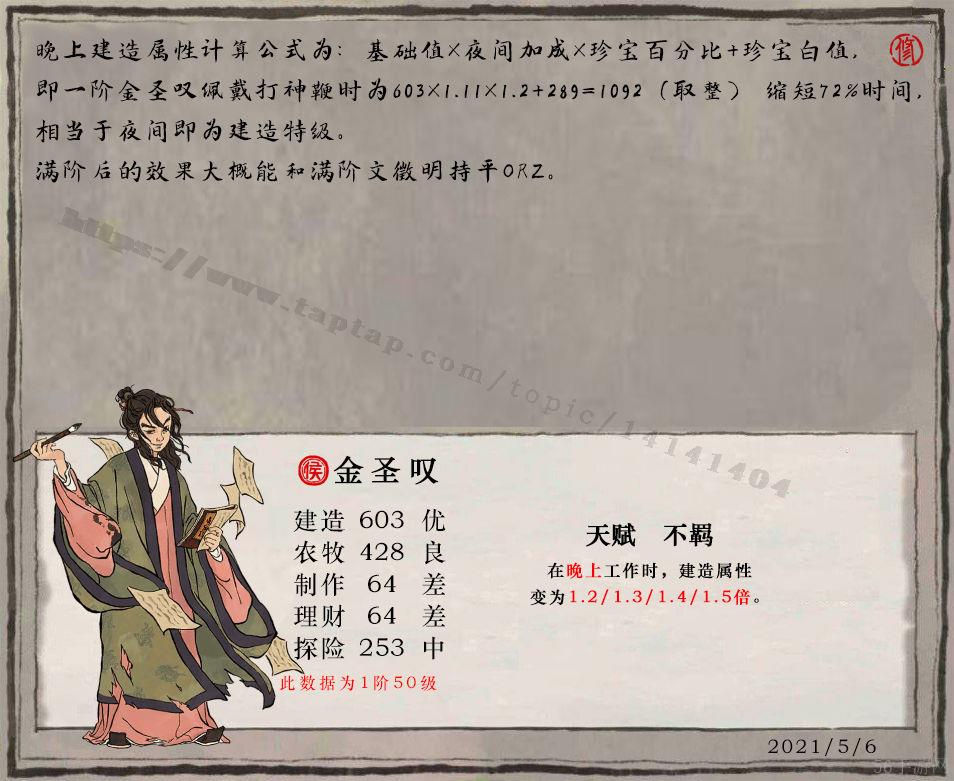 晚上建造属性计算公式为：基础值×夜间加成×珍宝百分比+珍宝白值，
修
即一阶金圣叹佩戴打神鞭时为603×1.11×1.2+289=1092（取整） 缩短72%时间，
相当于夜间即为建造特级。
满阶后的效果大概能和满阶文徵明持平ORZ。
https://www.taptap.com/topic/14141404
侯 金圣叹
建造 603 优
农牧 428 良
制作 64 差
理财 64 差
探险 253 中
此数据为1阶50级
天赋 不羁
在晚上工作时，建造属性
变为1.2/1.3/1.4/1.5倍。
2021/5/6